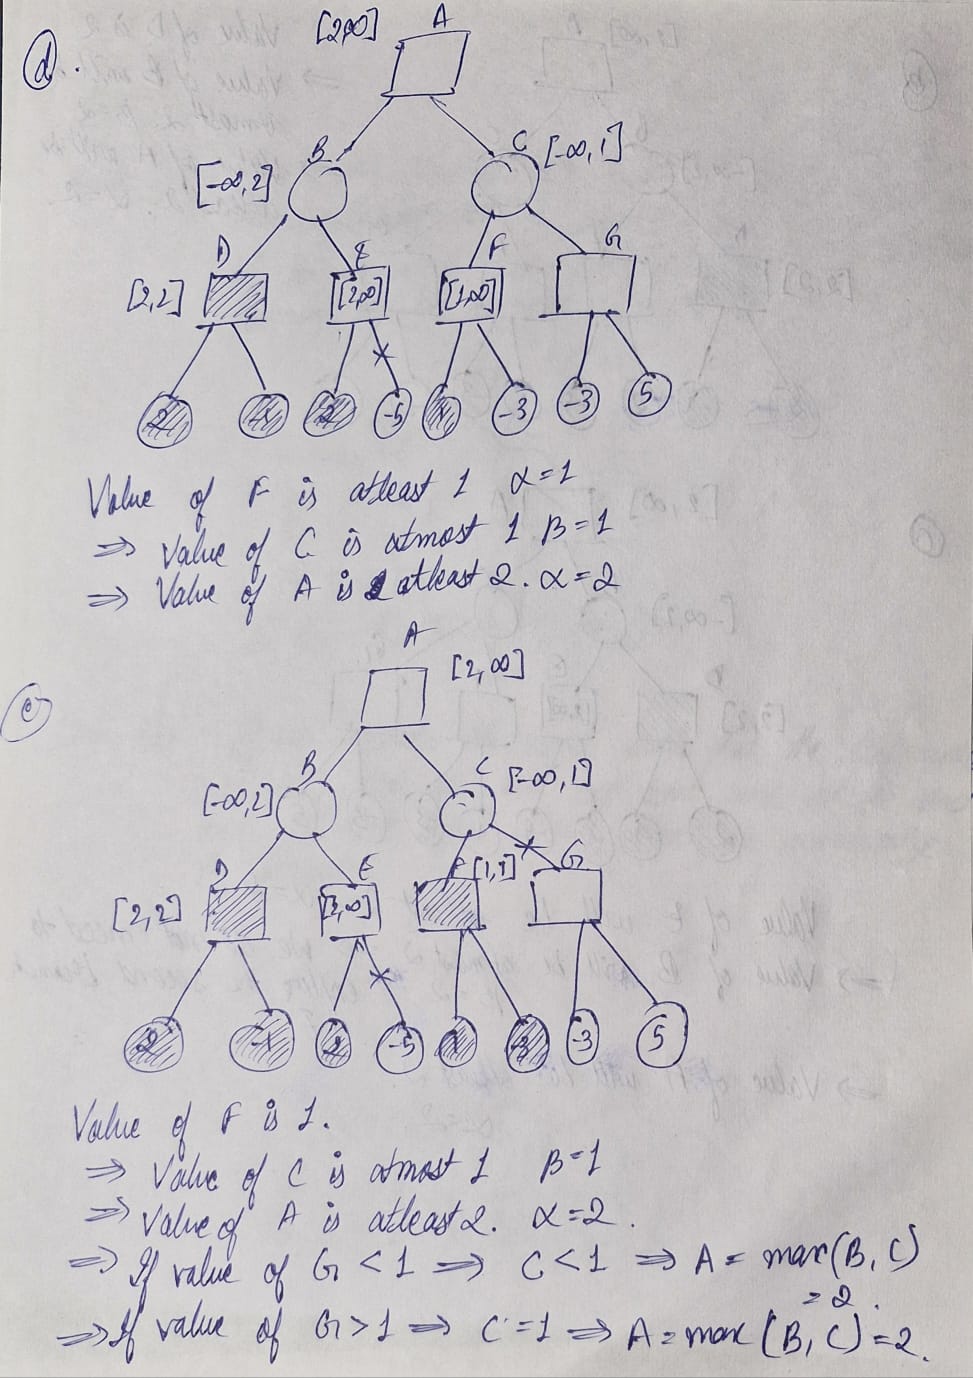 d.
[2,∞] A
B C [-∞,1]
[-∞,2]
D E F G
[2,2] [2,∞] [1,∞]
2 2 -5 1 -3 -3 5
Value of F is atleast 1 α=1
⇒ Value of C is atmost 1 B=1
⇒ Value of A is atleast 2. α=2
A
[2,∞]
e
B C [-∞,1]
[-∞,2]
D E F [1,1] G
[2,2] [2,∞]
2 -1 2 -5 1 -3 -3 5
Value of F is 1.
⇒ Value of C is atmost 1 B=1
⇒ Value of A is atleast 2. α=2.
⇒ If value of G < 1 ⇒ C < 1 ⇒ A = max(B, C)
= 2.
⇒ If value of G > 1 ⇒ C = 1 ⇒ A = max (B, C) = 2.